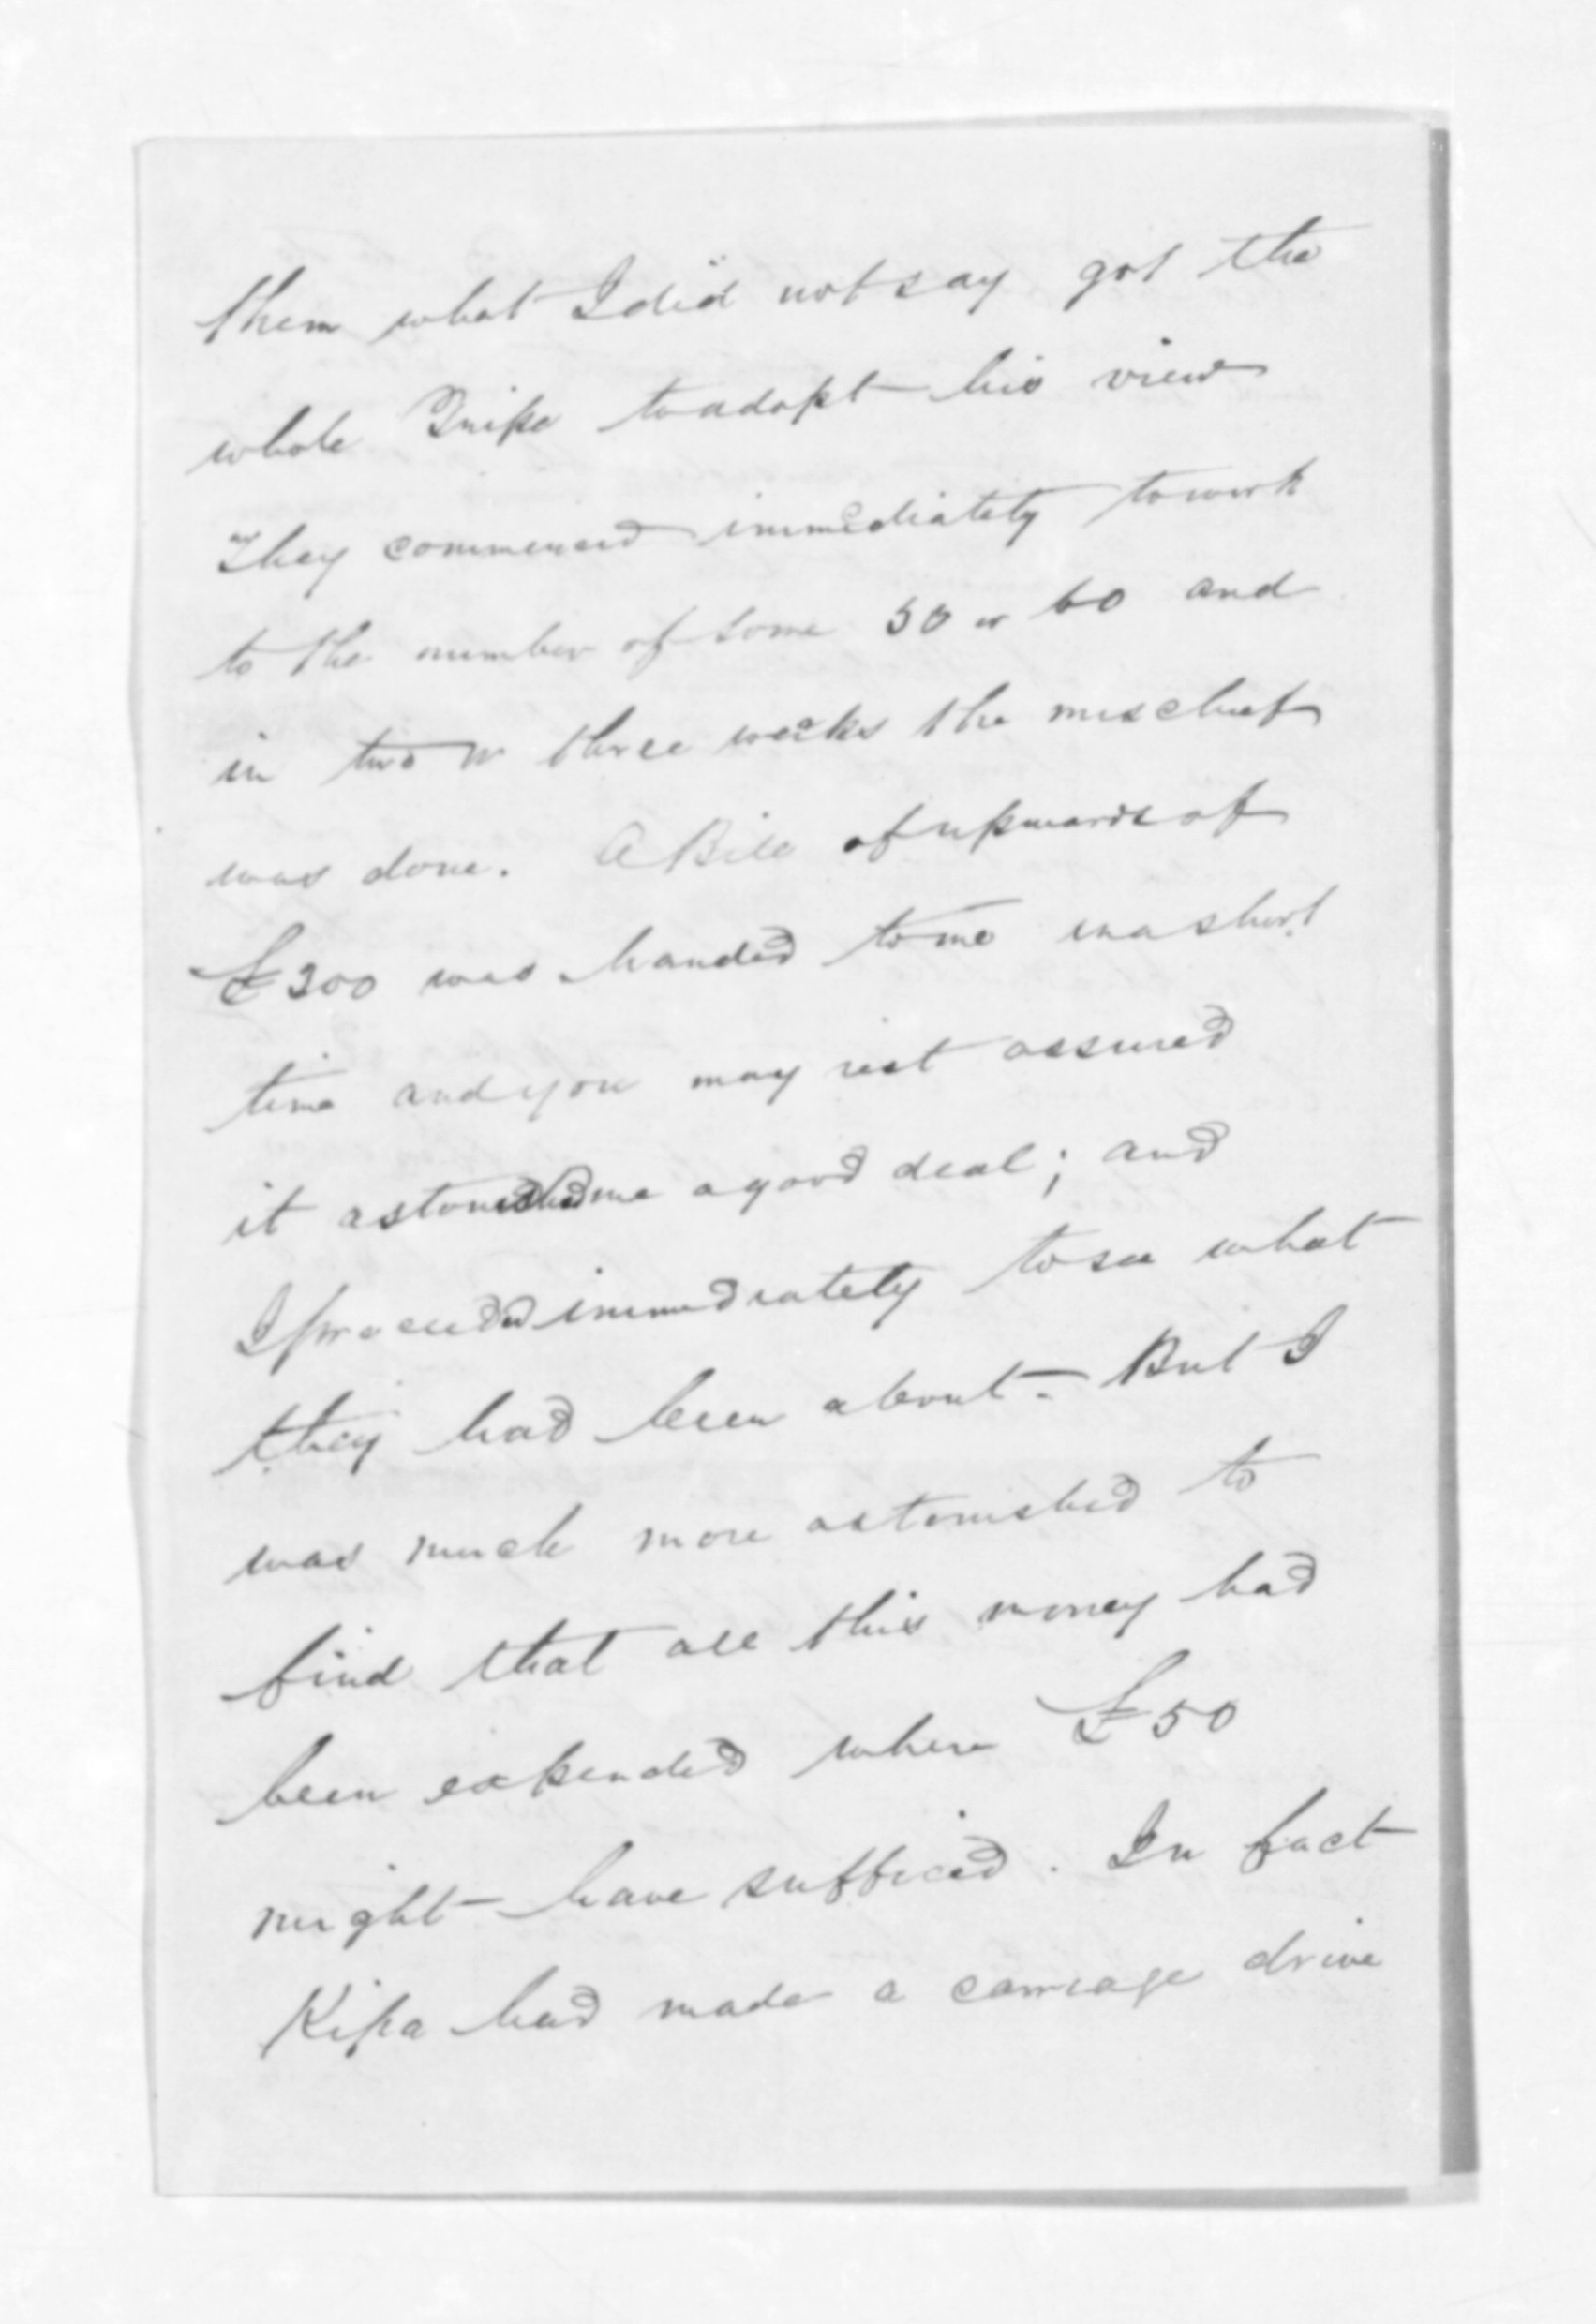 them what I did not say got the
whole Tribe to adopt his view
They commenced immediately to work
to the number of some 50 or 60 and
in two or three weeks the mischief
was done. A Bill of upwards of
£300 was handed to me in a short
time and you may rest assured
it astonished me a good deal; and
I proceeded immediately to see what
they had been about. But I
was much more astonished to
find that all this money had
been expended where £50
might have sufficed. In fact
Kipa had made a carriage drive